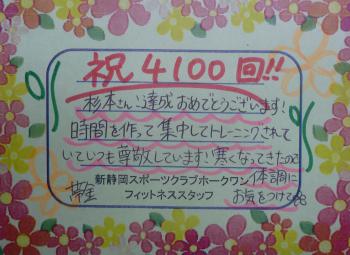 祝4100回!!
杉本さん!達成おめでとうございます!
時間を作って集中してトレーニングされて
いていつも尊敬しています!寒くなってきたので
体調に
お気をつけて
新静岡スポーツクラブホークワン
フィットネススタッフ